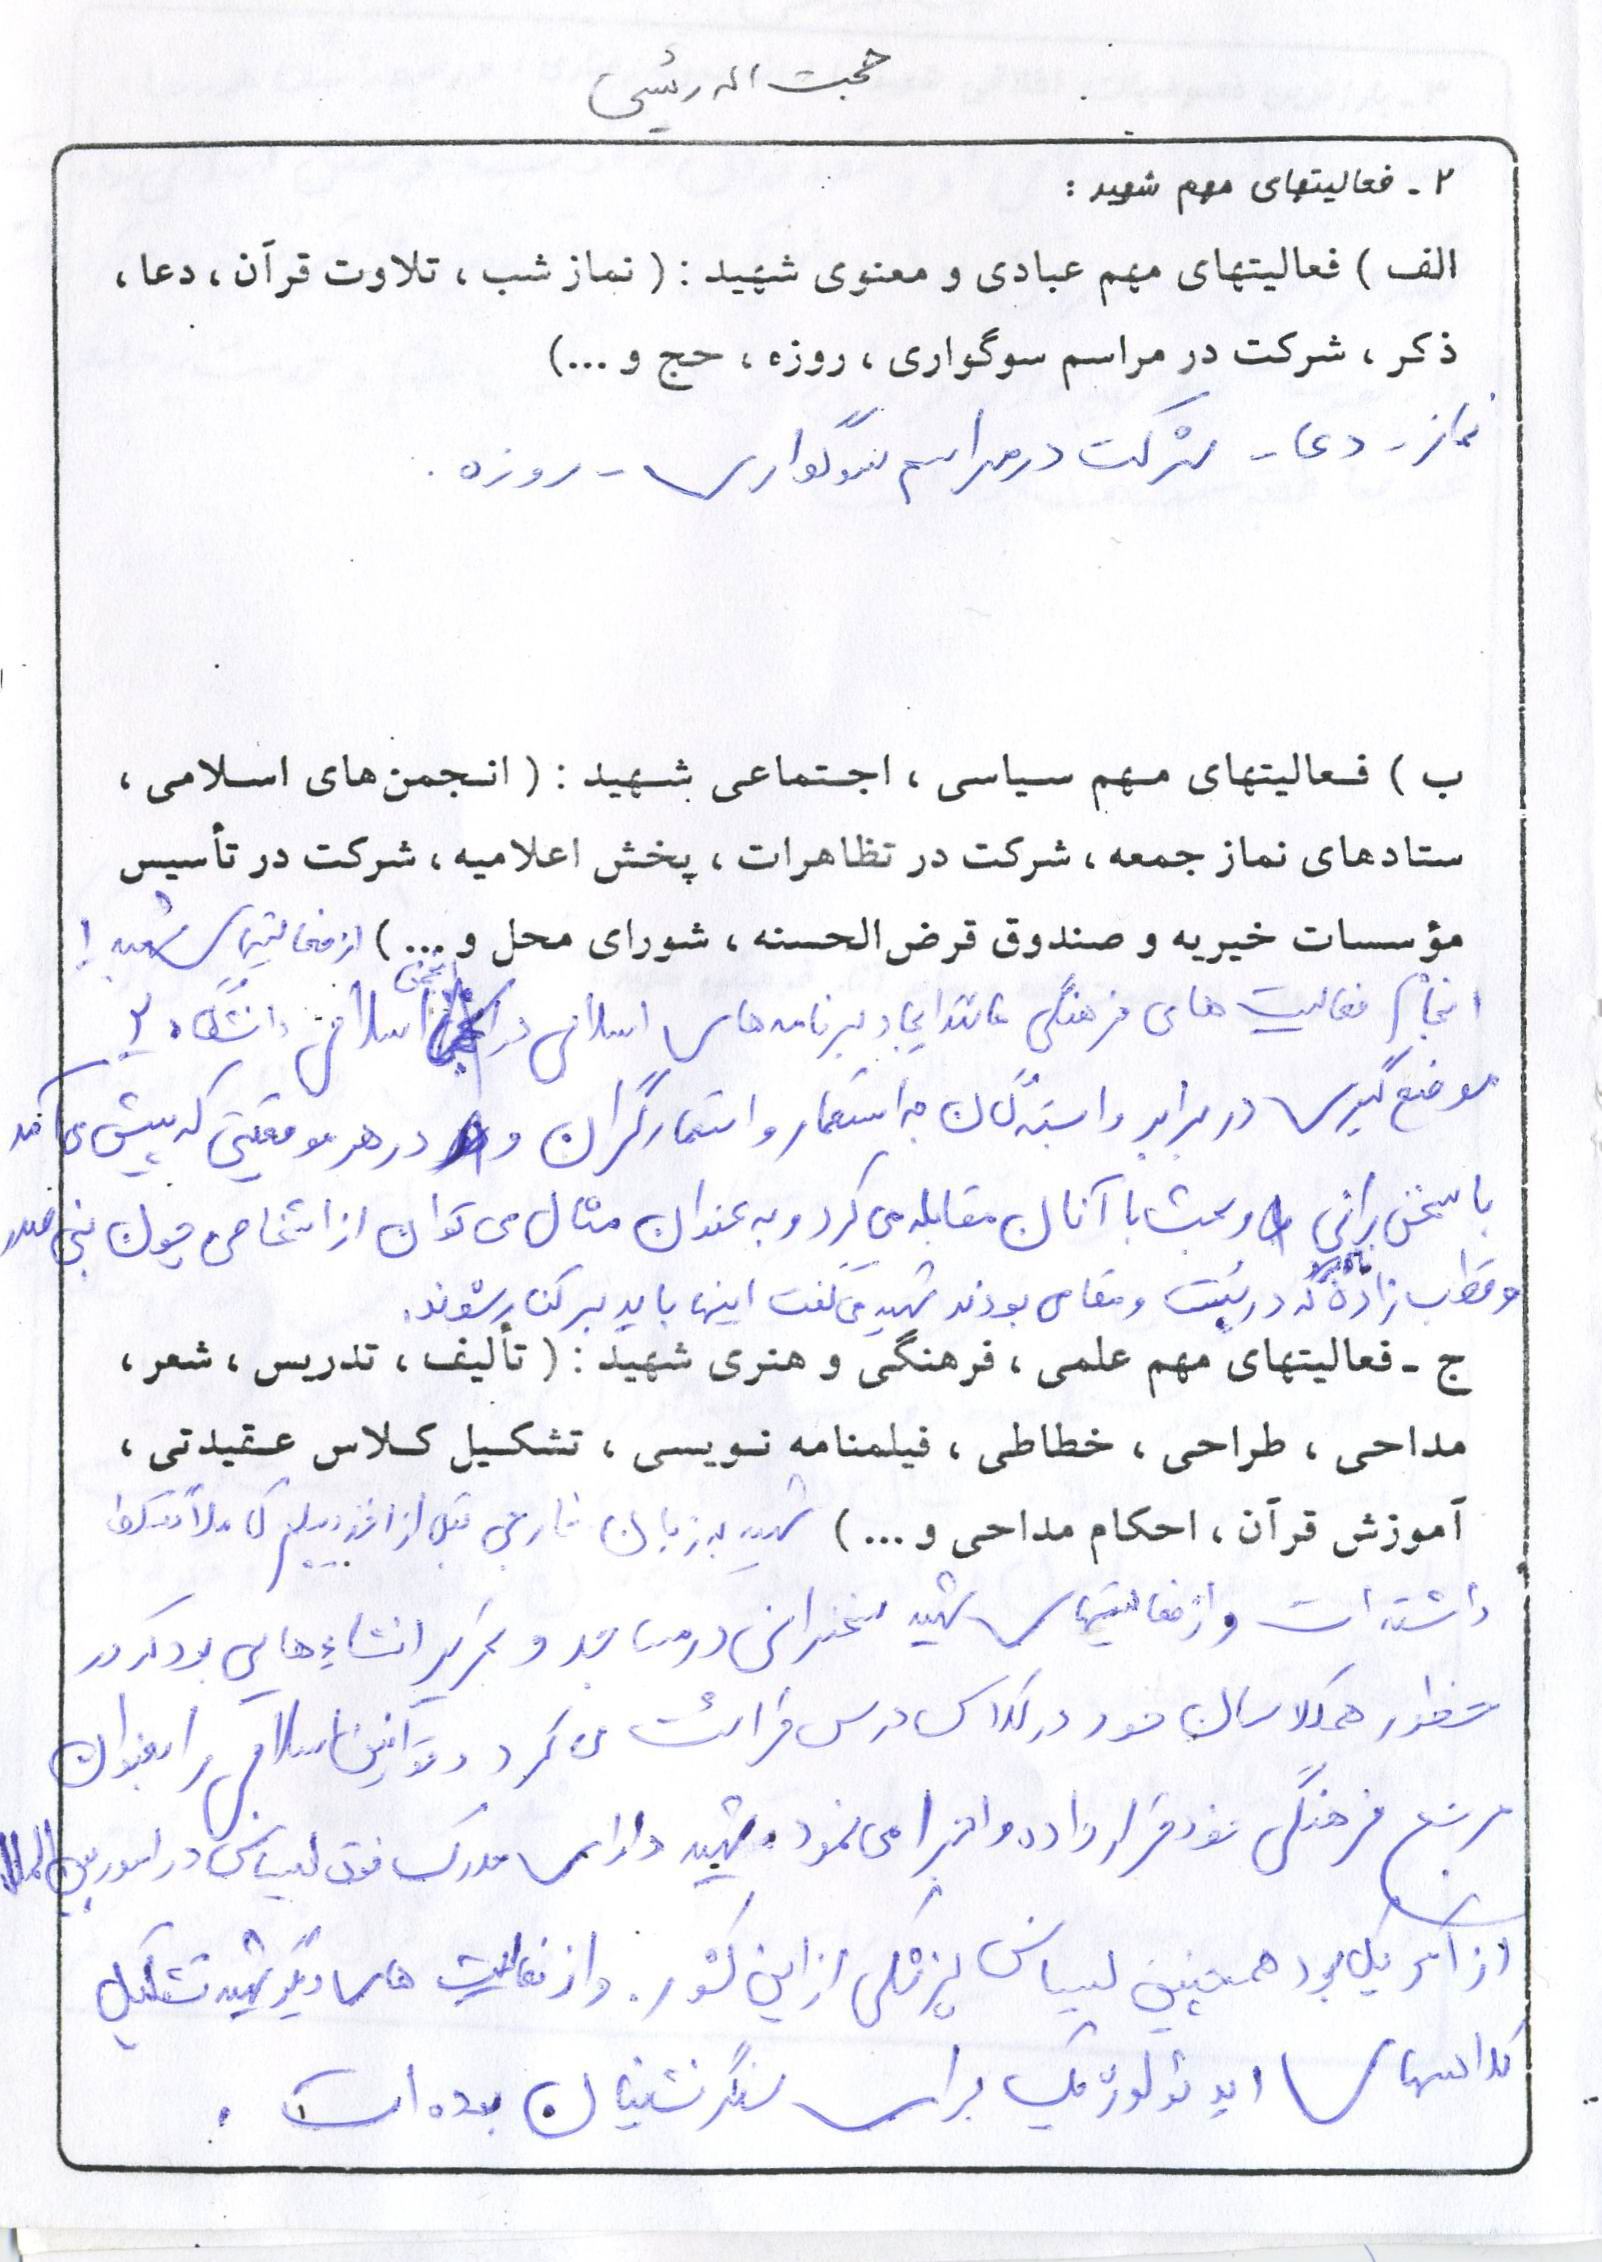 حجت اله رئیسی
۲ ـ فعالیتهای مهم شهید :
الف ) فعالیتهای مهم عبادی و معنوی شهید : ( نماز شب ، تلاوت قرآن ، دعا ،
ذکر ، شرکت در مراسم سوگواری ، روزه ، حج و ...)
نماز - دعا - شرکت در مراسم سوگواری - روزه .
ب ) فعالیتهای مهم سیاسی ، اجتماعی شهید : ( انجمن‌های اسلامی ،
ستادهای نماز جمعه ، شرکت در تظاهرات ، پخش اعلامیه ، شرکت در تأسیس
مؤسسات خیریه و صندوق قرض‌الحسنه ، شورای محل و ... ) از فعالیتهای شهید :
انجام فعالیت های فرهنگی مانند ایجاد برنامه های اسلامی در انجمن اسلامی دانشگاه ۲
موضع گیری در برابر وابستگان به استعمار و استعمارگران و در هر موقعیتی که پیش می آمد
با سخنرانی و بحث با آنان مقابله می کرد و به عنوان مثال می توان از اشخاصی چون بنی صدر
و قطب زاده که در پست و مقامی بودند شهید می گفت اینها باید برکنار شوند.
ج ـ فعالیتهای مهم علمی ، فرهنگی و هنری شهید : ( تألیف ، تدریس ، شعر ،
مداحی ، طراحی ، خطاطی ، فیلمنامه نویسی ، تشکیل کلاس عقیدتی ،
آموزش قرآن ، احکام مداحی و ... ) شهید به زبان خارجی قبل از اخذ دیپلم کاملاً تسلط
داشته است و از فعالیتهای شهید سخنرانی در مساجد و تحریر انشاء هایی بود که در
حضور همکلاسان خود در کلاس درس قرائت می کرد و قوانین اسلامی را بعنوان
مرجع فرهنگی خود قرار داده و اجرا می نمود شهید دارای مدرک فوق لیسانس در امور بین الملل
از آمریکا بود همچنین لیسانس پزشکی از این کشور . و از فعالیت های دیگر شهید تشکیل
کلاسهای ایدئولوژیک برای سنگرنشینان بوده است .